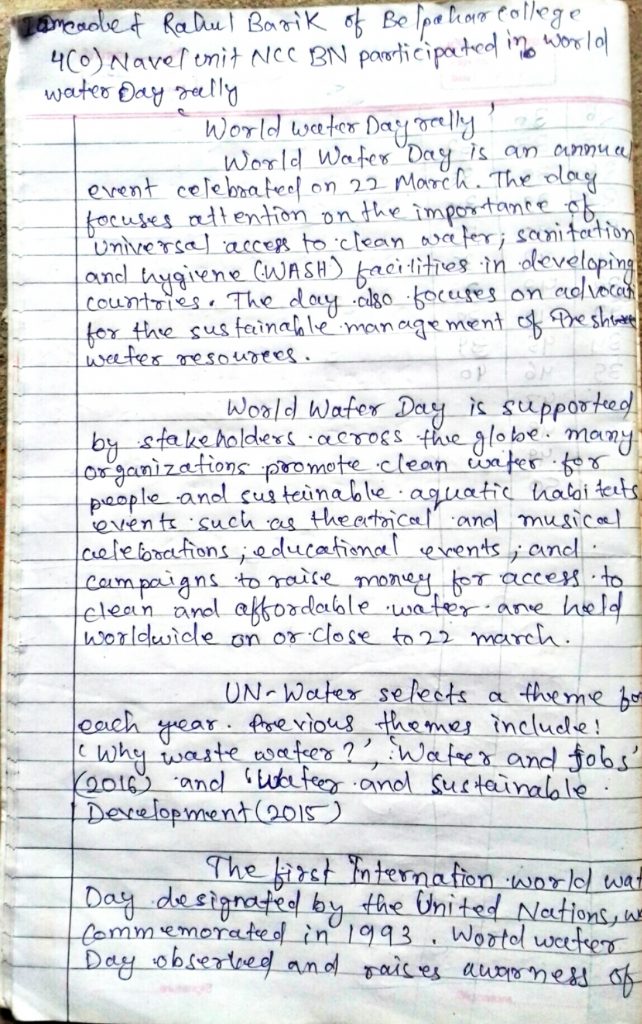 I amcadet Rahul Barik of Belpahar college
4(O) Navel unit NCC BN participated in world
water Day rally
'World water Day rally'
World Water Day is an annual
event celebrated on 22 March. The day
focuses attention on the importance of
universal access to clean water, sanitation
and hygiene (WASH) facilities in developing
countries. The day also focuses on advocat
for the sustainable management of Freshwater
water resources.
World Water Day is supported
by stakeholders across the globe. many
organizations promote clean water for
people and sustainable aquatic habitats
events such as theatrical and musical
celebrations, educational events, and
campaigns to raise money for access to
clean and affordable water are held
worldwide on or close to 22 march.
UN-Water selects a theme for
each year. Previous themes include!
'Why waste water?', 'Water and Jobs'
(2016) and 'Water and Sustainable
Development (2015)
The first Internation world wat
Day designated by the United Nations, w
Commemorated in 1993. World water
Day observed and raises awarness of